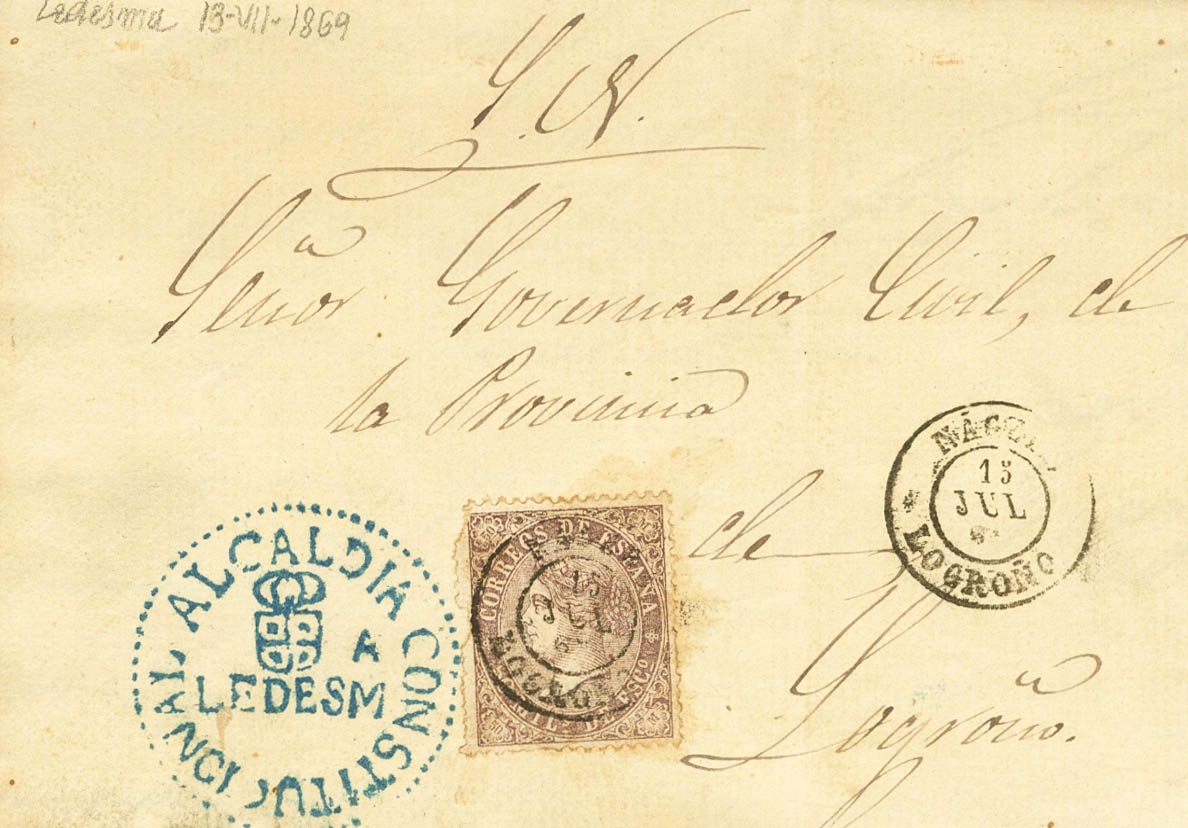 Ledesma 13-VII-1869
S. N.
Señor Governador Civil, de
la Provincia
de
Logroño.
ALCALDIA CONSTITUCIONAL
LEDESMA
CORREOS DE ESPAÑA
15
JUL
LOGROÑO
15
JUL
LOGROÑO